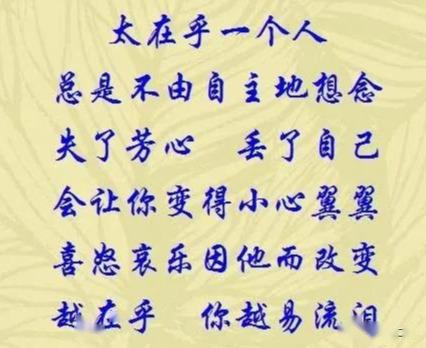 太在乎一个人
总是不由自主地想念
失了芳心　丢了自己
会让你变得小心翼翼
喜怒哀乐因他而改变
越在乎　你越易流泪